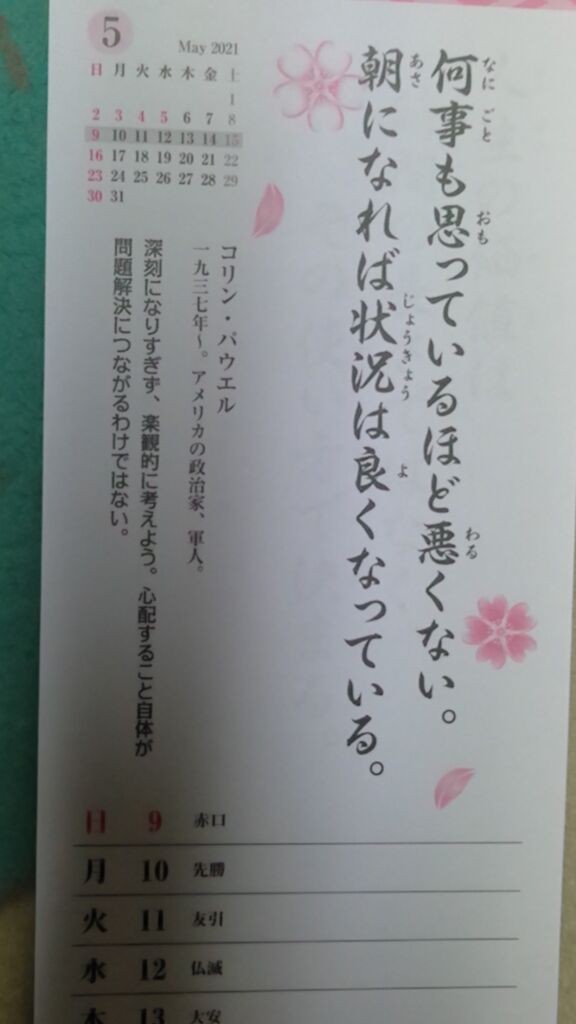 5
May 2021
日 月 火 水 木 金 土
1
2 3 4 5 6 7 8
9 10 11 12 13 14 15
16 17 18 19 20 21 22
23 24 25 26 27 28 29
30 31
何事も思っているほど悪くない。
なにごと おも わる
朝になれば状況は良くなっている。
あさ じょうきょう よ
コリン・パウエル
一九三七年〜。アメリカの政治家、軍人。
深刻になりすぎず、楽観的に考えよう。心配すること自体が
問題解決につながるわけではない。
日 9 赤口
月 10 先勝
火 11 友引
水 12 仏滅
木 13 大安